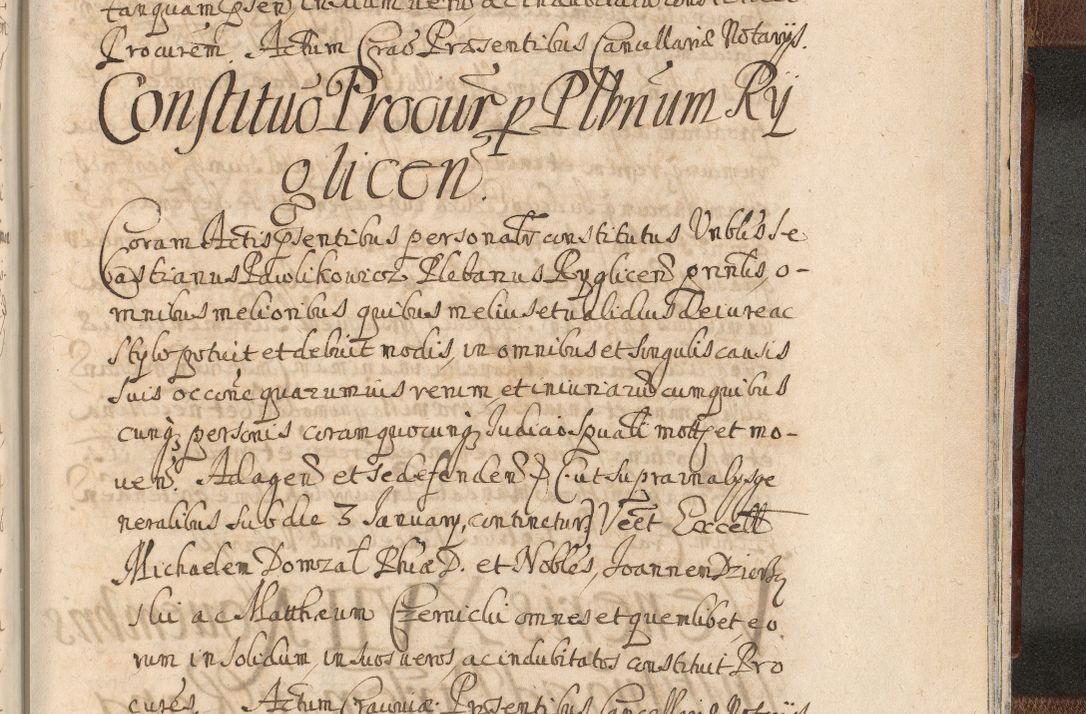 Procurem. Actum Crac Præsentibus Cancellariæ Notarijs.
Constituo Procur p Plbnum Ry
glicen.
Coram Actis psentibus personalr constitutus Vnblis Se
bastianus Pawlikowicz Plebanus Ryglicen prnlis, o-
mnibus melioribus quibus melius et validius de iure ac
stylo potuit et debuit modis, in omnibus et singulis causis
suis occone quarumuis rerum et iniuriaru cum quibus
cunq personis coram quocunq Iudicio spuali mot et mo-
uen Ad agen et se defenden (: ut supra in alijs ge
neralibus sub die 3 January, continetur) Veet Excell
Michaelem Domzal Phiæ D. et Nobles, Joannem Dziers
ski ac Matthæum Czernicki omnes et quemlibet eo
rum in solidum, in suos veros, ac indubitatos constituit Pro
cures. Actum Cracouiæ Præsentibus Cancellariæ Notarijs